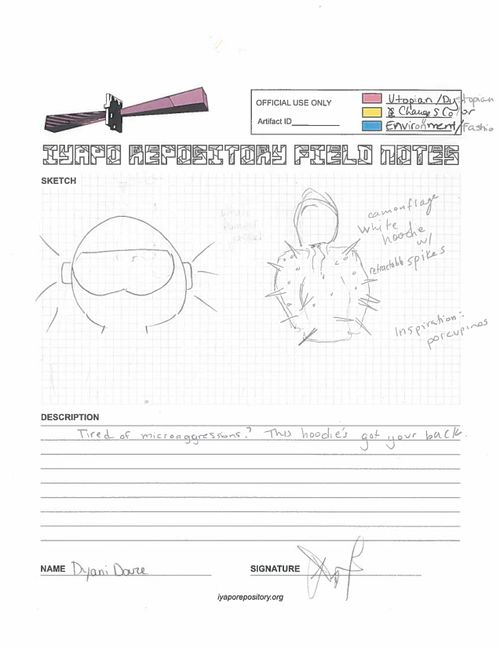 OFFICIAL USE ONLY
Artifact ID
Utopian/Dystopian
& Changes Color
Environment/Fashio
IYAPO REPOSITORY FIELD NOTES
SKETCH
camonflage
white
hoodie
w/
retractable spikes
Inspiration:
porcupines
DESCRIPTION
Tired of microaggressions? This hoodie's got your back.
NAME Dyani
SIGNATURE
iyaporepository.org